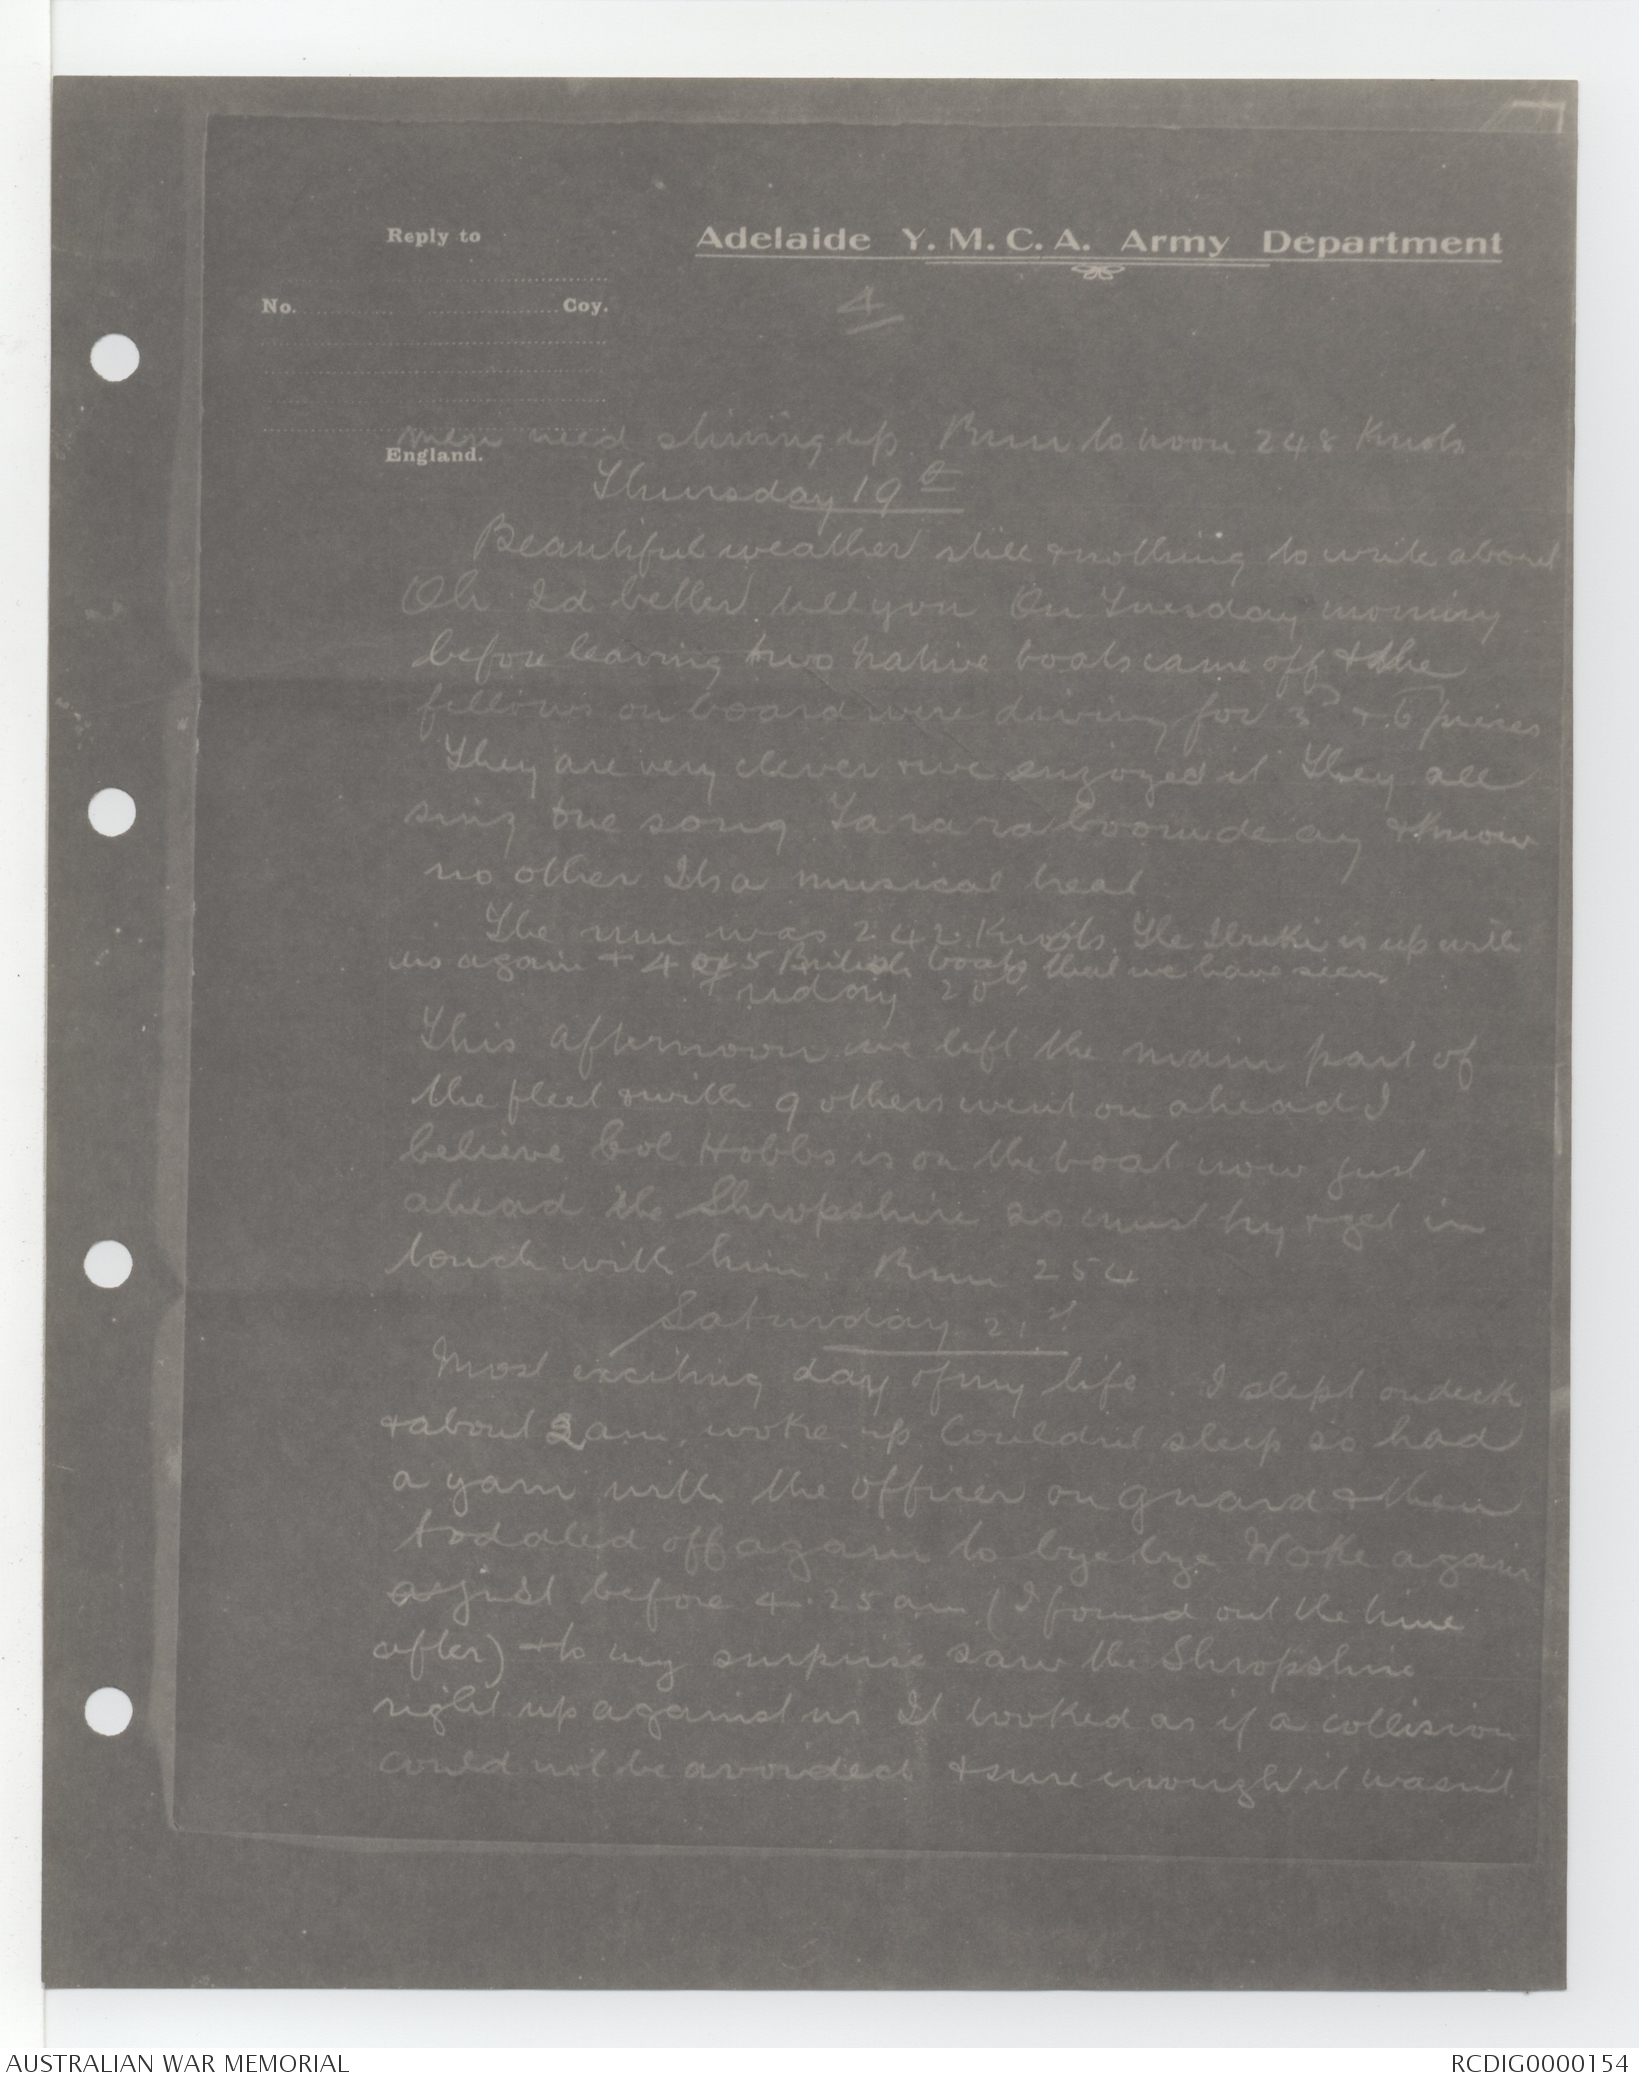 Reply to
Adelaide Y. M. C. A. Army Department
No. Coy.
4
England.
men need shiving up. Run to noon 248 Knots
Thursday 19th
Beautiful weather still & nothing to write about
Oh I'd better tell you On Tuesday morning
before leaving two native boats came off & the
fellows on board were diving for 3d & 6d pieces
They are very clever & we enjoyed it They all
sing one song Tarara boomdeay & know
no other Its a musical treat
The run was 242 Knots. The is up with
us again & 4 or 5 British boats that we have seen
Friday 20th
This afternoon we left the main part of
the fleet & with 9 others went on ahead I
believe Col Hobbs is on the boat now just
ahead the Shropshire so must try & get in
touch with him. Run 254
Saturday 21st
Most exciting day of my life. I slept on deck
& about 3am. woke up Couldnt sleep so had
a yarn with the officer on guard & then
toddled off again to bye bye Woke again
just before 4.25 am (I found out the time
after) & to my surprise saw the Shropshire
right up against us It looked as if a collision
could not be avoided & sure enough it wasn't
AUSTRALIAN WAR MEMORIAL
RCDIG0000154